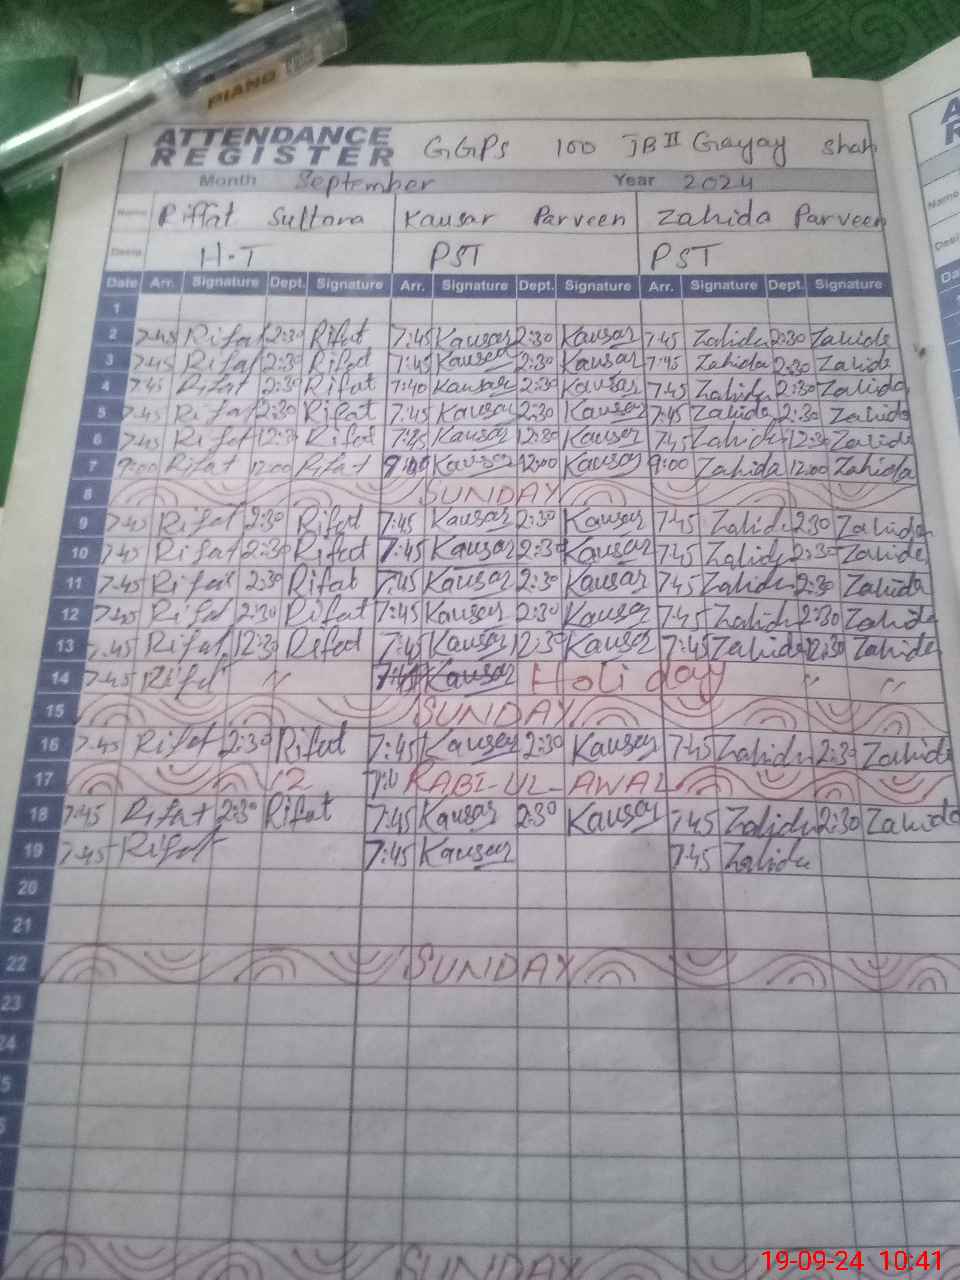 PIANO
ATTENDANCE REGISTER GGPS 100 JB II Gayay Shah
Month September Year 2024
Name Riffat Sultana Kausar Parveen Zahida Parveen
Desig. H.T PST PST
Date Arr. Signature Dept. Signature Arr. Signature Dept. Signature Arr. Signature Dept. Signature
1
2 7:45 Rifat 2:30 Rifat 7:45 Kausar 2:30 Kausar 7:45 Zahida 2:30 Zahida
3 7:45 Rifat 2:30 Rifat 7:45 Kausar 2:30 Kausar 7:45 Zahida 2:30 Zahida
4 7:45 Rifat 2:30 Rifat 7:40 Kausar 2:30 Kausar 7:45 Zahida 2:30 Zahida
5 7:45 Rifat 2:30 Rifat 7:45 Kausar 2:30 Kausar 7:45 Zahida 2:30 Zahida
6 7:45 Rifat 12:30 Rifat 7:45 Kausar 12:30 Kausar 7:45 Zahida 12:30 Zahida
7 9:00 Rifat 12:00 Rifat 9:00 Kausar 12:00 Kausar 9:00 Zahida 12:00 Zahida
8 SUNDAY
9 7:45 Rifat 2:30 Rifat 7:45 Kausar 2:30 Kausar 7:45 Zahida 2:30 Zahida
10 7:45 Rifat 2:30 Rifat 7:45 Kausar 2:30 Kausar 7:45 Zahida 2:30 Zahida
11 7:45 Rifat 2:30 Rifat 7:45 Kausar 2:30 Kausar 7:45 Zahida 2:30 Zahida
12 7:45 Rifat 2:30 Rifat 7:45 Kausar 2:30 Kausar 7:45 Zahida 2:30 Zahida
13 7:45 Rifat 12:30 Rifat 7:45 Kausar 12:30 Kausar 7:45 Zahida 12:30 Zahida
14 7:45 Rifat " Kausar Holiday " "
15 SUNDAY
16 7:45 Rifat 2:30 Rifat 7:45 Kausar 2:30 Kausar 7:45 Zahida 2:30 Zahida
17 12 RABI-UL-AWAL
18 7:45 Rifat 2:30 Rifat 7:45 Kausar 2:30 Kausar 7:45 Zahida 2:30 Zahida
19 7:45 Rifat 7:45 Kausar 7:45 Zahida
20
21
22 SUNDAY
23
24
5
SUNDAY
19-09-24 10:41